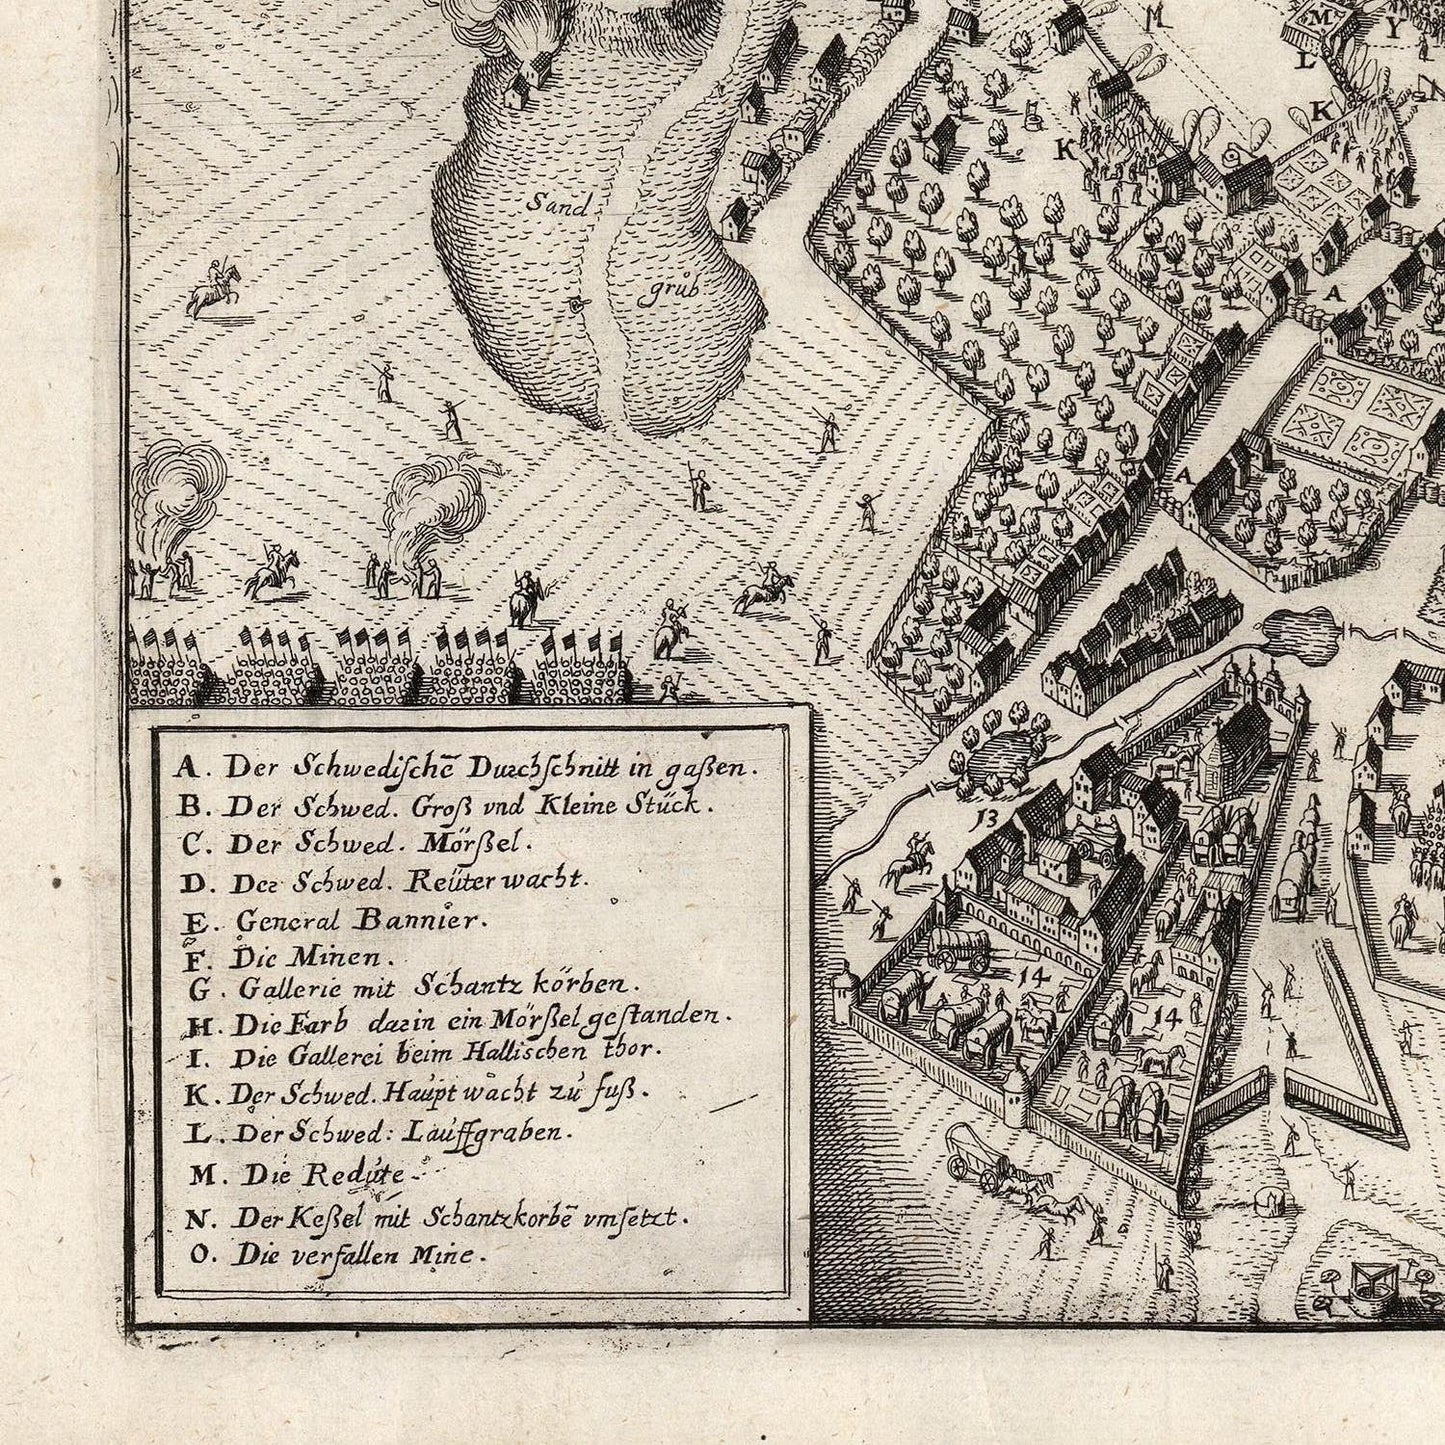 M
M
Y
L
N
K
K
Sand
grůb
A
A
13
14
14
A. Der Schwedischē Durchschnitt in gaßen.
B. Der Schwed. Groß vnd Kleine Stück.
C. Der Schwed. Mörßel.
D. Der Schwed. Reüter wacht.
E. General Bannier.
F. Die Minen.
G. Gallerie mit Schantz körben.
H. Die Farb darin ein Mörßel gestanden.
I. Die Gallerei beim Hallischen thor.
K. Der Schwed. Haůpt wacht zů fuß.
L. Der Schwed: Laůffgraben.
M. Die Redůte.
N. Der Keßel mit Schantzkorbē vmsetzt.
O. Die verfallen Mine.